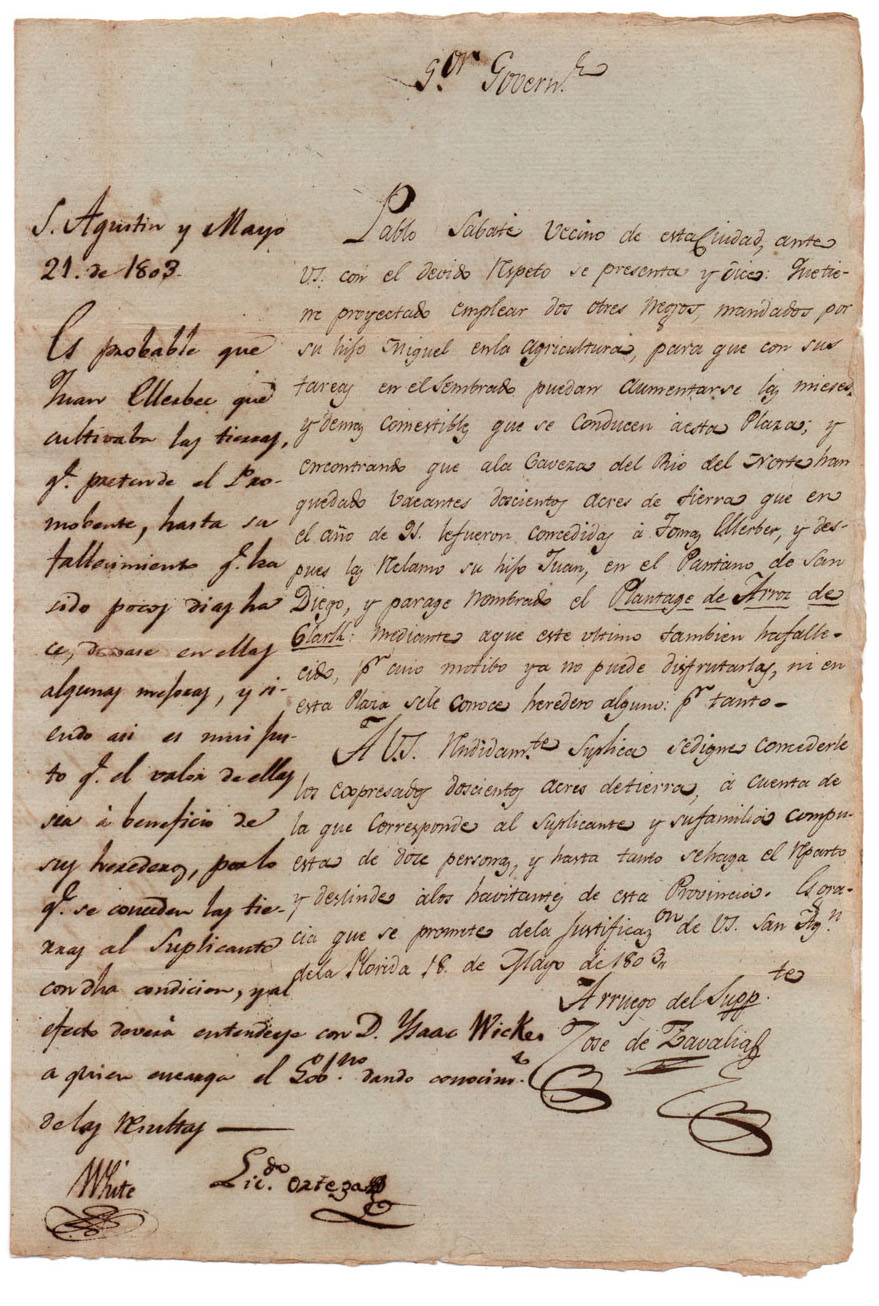 S.or Govern.r
Pablo Sabate Vecino de esta Ciudad, ante
VS. con el devido Respeto se presenta y dice: Que tie-
ne proyectado emplear dos o tres Negros, mandados por
su hijo Miguel en la agricultura, para que con sus
tareas en el Sembrado puedan aumentarse las mieses,
y demas comestibles que se conducen à esta Plaza; y
encontrando que a la Caveza del Rio del Norte han
quedado vacantes doscientos acres de tierra que en
el año de 91. le fueron concedidas à Tomas Ellerbee, y des-
pues las Reclamo su hijo Juan, en el Pantano de San
Diego, y parage nombrado el Plantage de Arroz de
Clark: mediante a que este ultimo tambien ha falle-
cido, p.r cuio motibo ya no puede disfrutarlas, ni en
esta Plaza se le conoce heredero alguno: p.r tanto-
A VS. Rendidam.te Suplica se digne concederle
los expresados doscientos acres de tierra, à cuenta de
la que corresponde al Suplicante y su familia compu-
esta de doze personas, y hasta tanto se haga el Reparto
y deslinde à los havitantes de esta Provincia. Es gra-
cia que se promete de la Justificaz.on de VS. San Ag.n
de la Florida 18. de Mayo de 1803,,
A rruego del Supp.te
Jose de Zavalia
S. Agustin y Mayo
21. de 1803.
Es probable que
Juan Ellerbee que
cultivaba las tierras,
q.e pretende el Pro-
mobente, hasta su
fallecimiento q.e ha
sido pocos dias ha
ce, dexase en ellas
algunas mejoras, y si-
endo asi es mui jus-
to q.e el valor de ellas
sea à beneficio de
sus herederos, por lo
q.e se conceden las tie-
rras al Suplicante
con dha condicion, y al
efecto deverà entenderse con D. Ysaac Wickes
a quien encarga el Gob.no dando conocim.to
de las Resultas
White
Lic.do Ortega